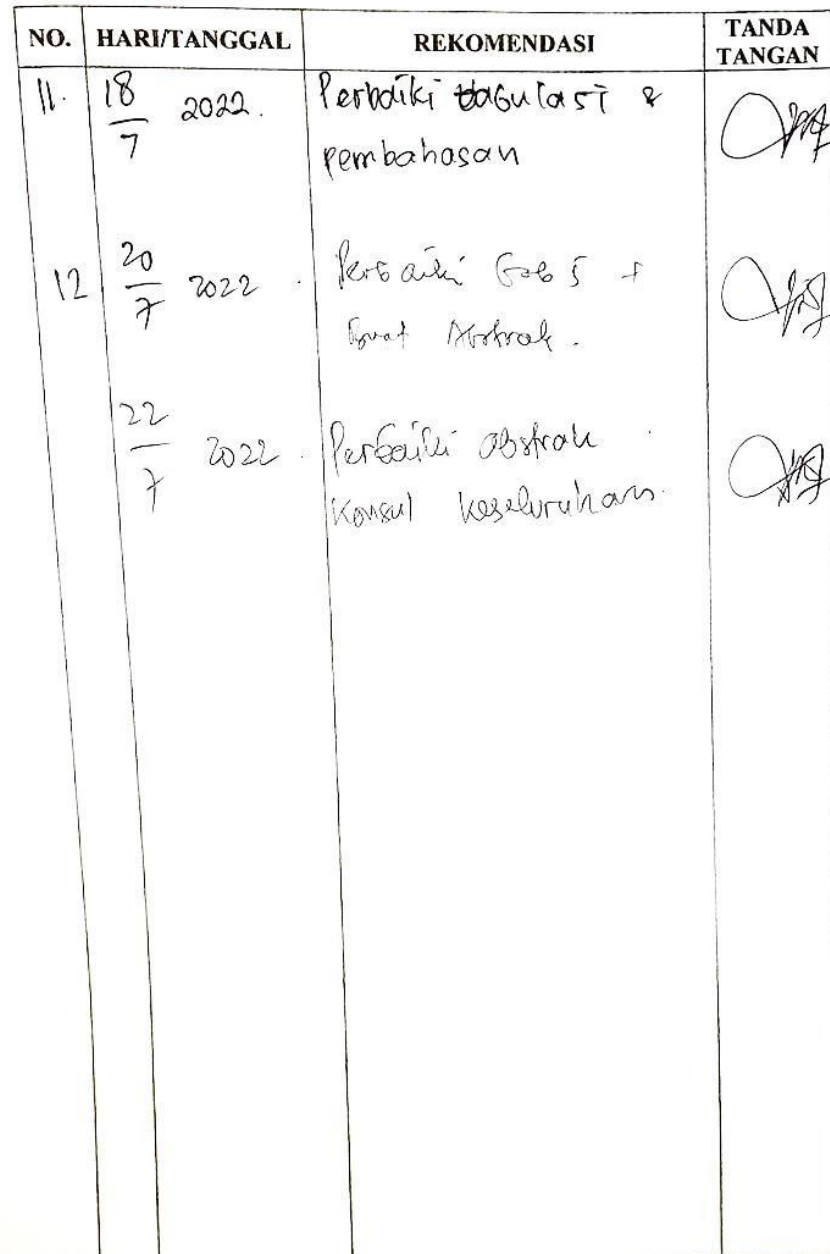 NO. HARI/TANGGAL REKOMENDASI TANDA TANGAN
11. 18/7 2022. Perbaiki tabulasi &
pembahasan
12 20/7 2022. Perbaiki Bab 5 +
Buat Abstrak.
22/7 2022. Perbaiki abstrak.
Konsul keseluruhan.